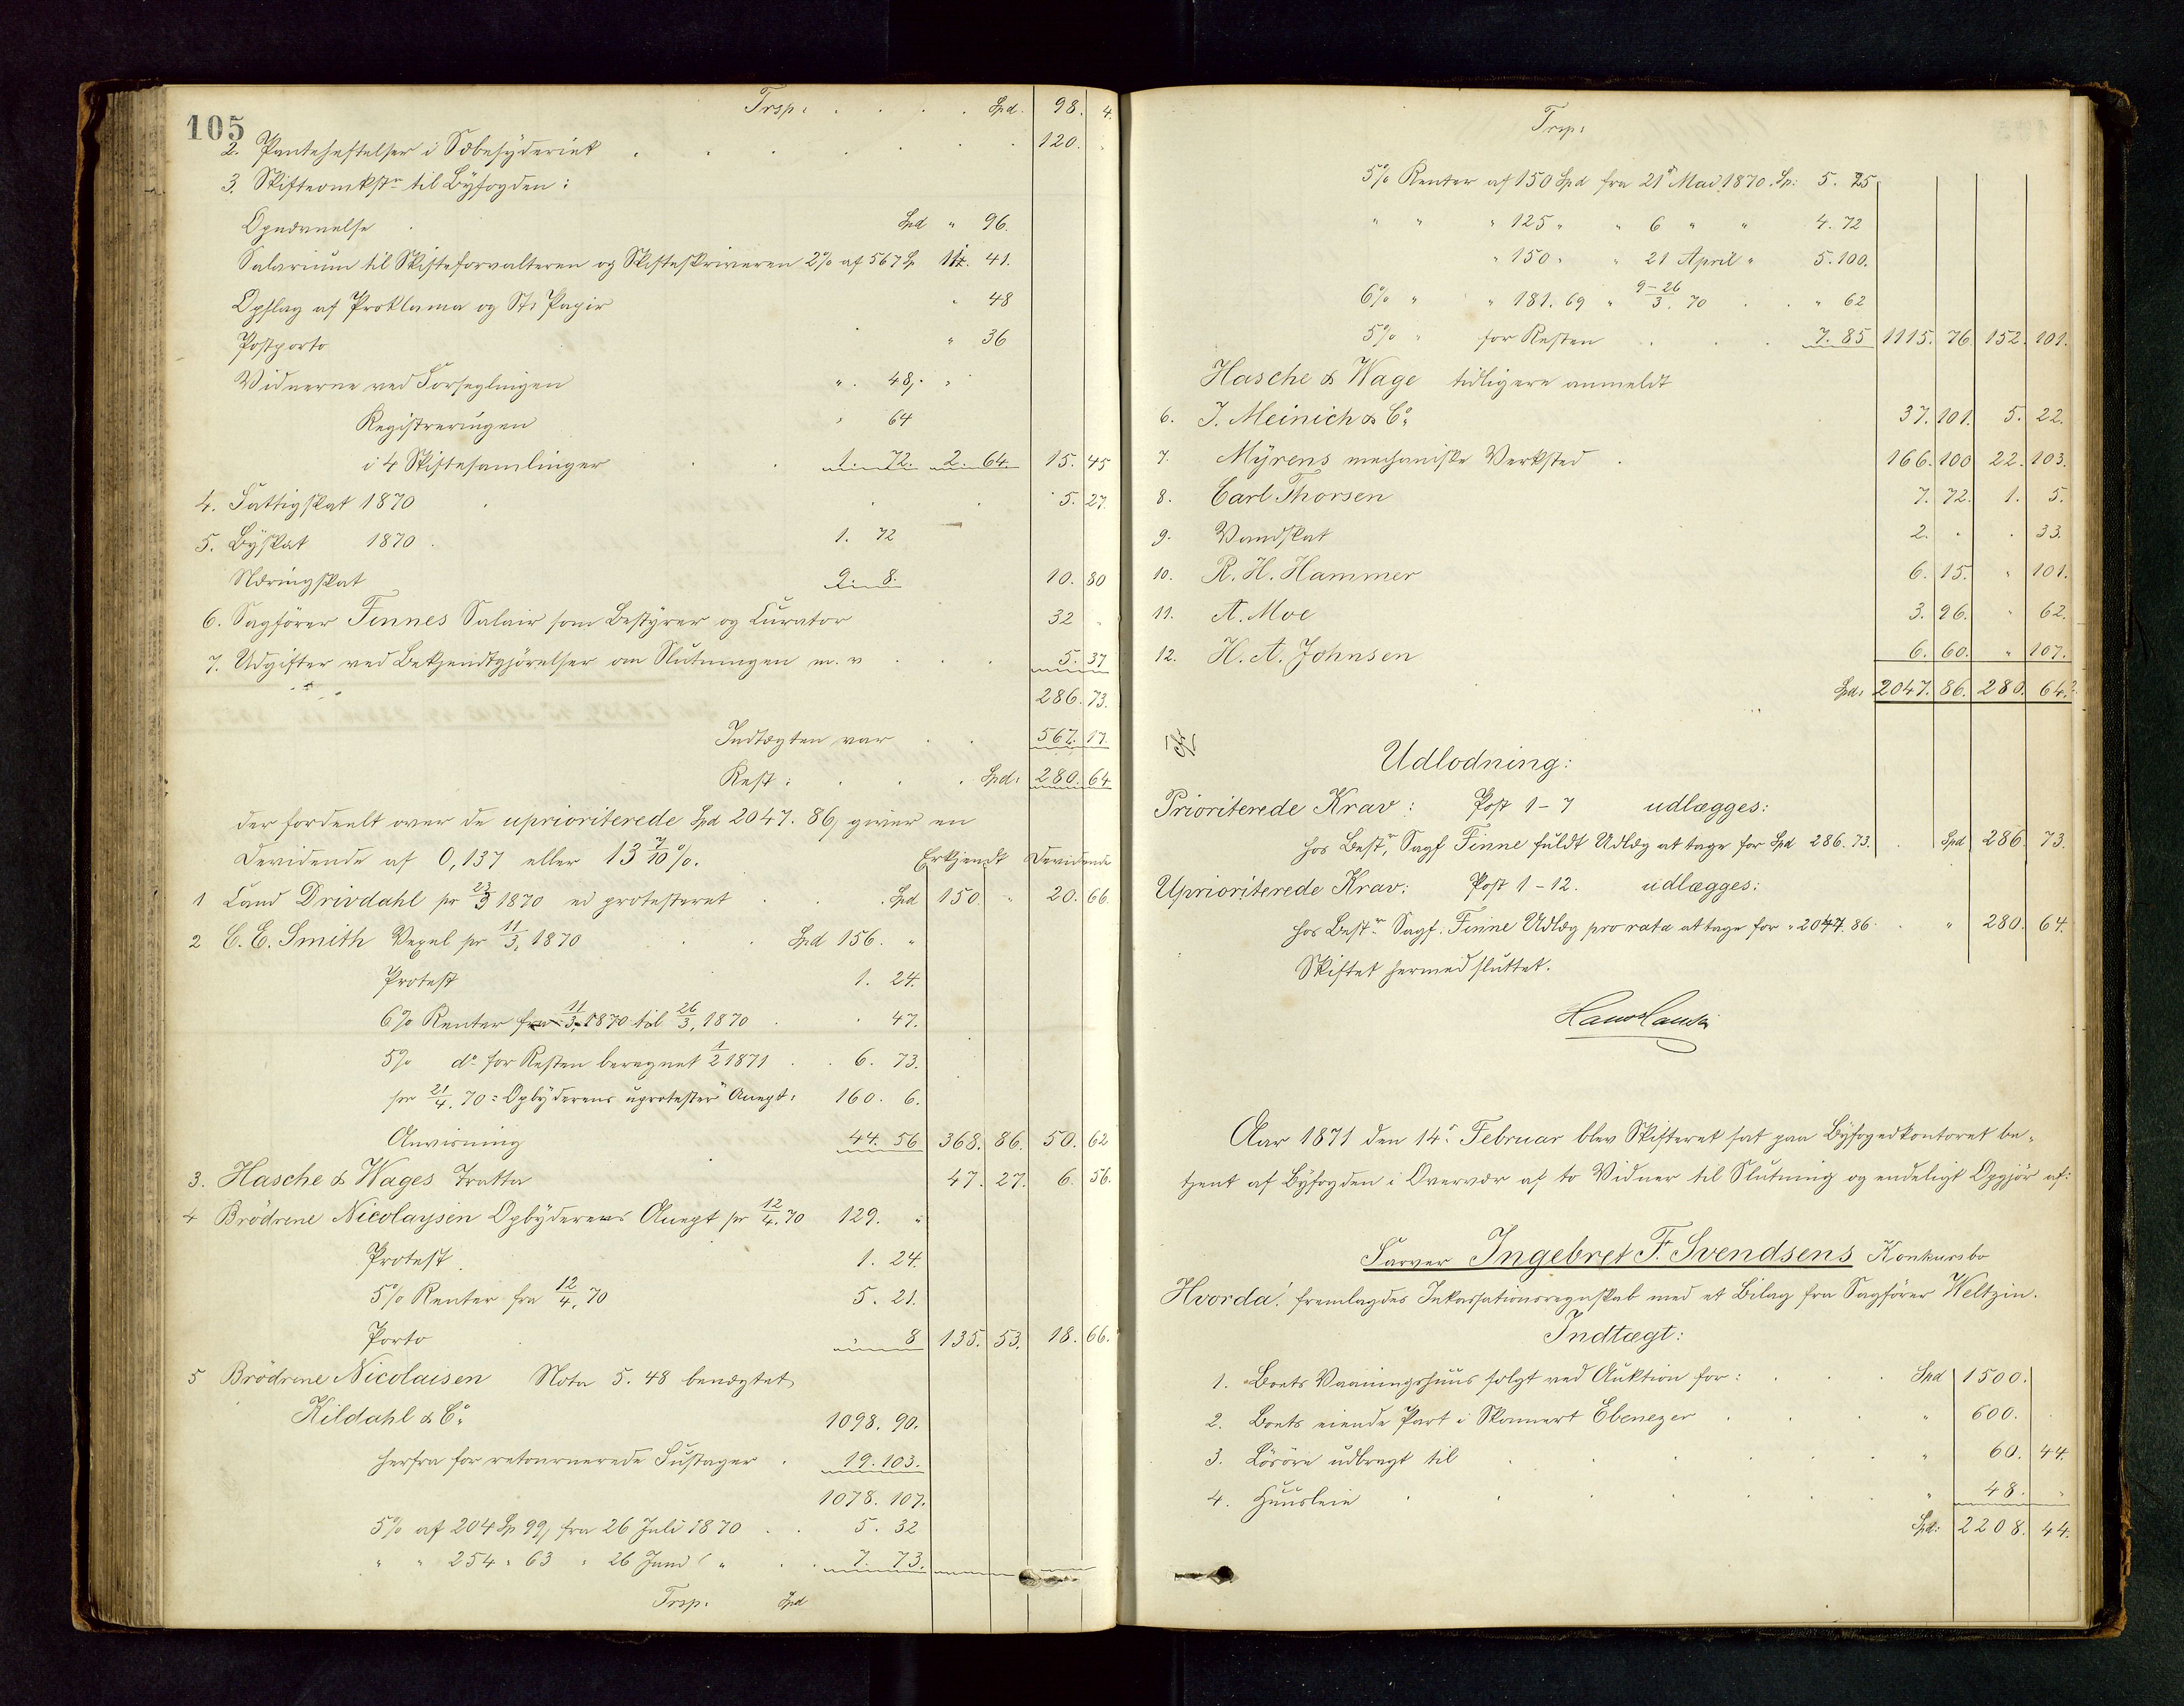 105
Trsp: . . . . Spd. 98. 4.
2. Pantehæftelser i Sæbesyderiet . . . . . . 120. .
3. Skifteomkstr til Byfogden:
Opnævnelse . Spd " 96.
Salarium til Skifteforvalteren og Skifteskriveren 2% af 567 Sp 11. 41.
Opslag af Proklama og St: Papir " 48
Postporto " 36
Vidnerne ved Forseglingen ". 48. "
Registreringen " 64
i 4 Skiftesamlinger . . 1. 72. 2. 64. 15. 45
4. Fattigskat 1870 . . . 5. 27.
5. Byskat 1870 . 1. 72
Næringskat 9. 8. 10. 80
6. Sagförer Finnes Salair som Bestyrer og Curator 32 .
7. Udgifter ved Bekjendtgjörelser om Slutningen m. v . . . 5. 37
286. 73.
Indtægten var . . 567. 17.
Rest: . . . Spd: 280. 64
der fordeelt over de uprioriterede Spd 2047. 86, giver en
Devidende af 0,137 eller 13 7/10 %. Erkjendt Devidende
1 Cand Drivdahl pr 23/3 1870 ei protesteret . . . Spd 150. " 20. 66.
2 C. E. Smith Vexel pr 11/3, 1870 . . Spd 156. "
Protest 1. 24.
6% Renter fra 11/3, 1870 til 26/3, 1870 . . 47.
5% do for Resten beregnet 1/2 1871 . . 6. 73.
pr 21/4. 70 = Opbyderens uprotester Accept: 160. 6.
Anvisning 44. 56 368. 86. 50. 62
3. Hasche & Wages Tratta 47. 27. 6. 56.
4 Brödrene Nicolaysen Opbyderens Accept pr 12/4. 70 129. "
Protest . 1. 24.
5% Renter fra 12/4, 70 5. 21.
Porto " 8 135. 53. 18. 66.
5 Brödrene Nicolaisen Nota 5. 48 benægtet
Kildahl & Co: 1098. 90.
herfra for retournerede Fustager . 19. 103.
1078. 107.
5% af 204 Sp 99, fra 26 Juli 1870 . . 5. 32
" " 254 " 63 " 26 Juni " . . 7. 73.
Trsp. Spd
Trsp:
5% Renter af 150 Spd fra 21de Mai 1870. Sp: 5. 25
" " " 125 " " 6 " " 4. 72
" 150 " " 21 April " 5. 100.
6% " " 181. 69 " 9-26/3. 70 . . " 62
5% " for Resten . . . 7. 85 1115. 76. 152. 101.
Hasche & Wage tidligere anmeldt
6. J. Meinich & Co: 37. 101. 5. 22.
7. Myrens mechaniske Verksted . 166. 100 22. 103.
8. Carl Thorsen 7. 72. 1. 5.
9. Vandskat 2. " . 33.
10. R. H. Hammer 6. 15. " 101.
11. A. Moe 3. 96. " 62.
12. H. A. Johnsen 6. 60. " 107.
Spd: 2047. 86. 280. 64.
Udlodning:
Prioriterede Krav: Post 1-7 udlægges:
hos Bestr, Sagf Finne fuldt Udlæg at tage for Spd 286. 73. . Spd 286. 73.
Uprioriterede Krav: Post 1-12. udlægges:
hos Bestr Sagf: Finne Udlæg pro rata at tage for " 2047. 86. . " 280. 64.
Skiftet hermed sluttet.
Hans Hansen
Aar 1871 den 14de Februar blev Skifteret sat paa Byfogedkontoret be-
tjent af Byfogden i Overvær af to Vidner til Slutning og endeligt Opgjör af:
Garver Ingebret F. Svendsens Konkursbo
Hvorda: fremlagdes Inkassationsregnskab med et Bilag fra Sagförer Weltzin.
Indtægt:
1. Boets Vaaningshuus solgt ved Auktion for: . . . Spd 1500.
2. Boets eiende Part i Skonnert Ebenezer . . . " 600. .
3. Lösöre udbragt til . . . . . " 60. 44.
4. Huusleie . . . . . . " 48. "
Spd: 2208. 44.